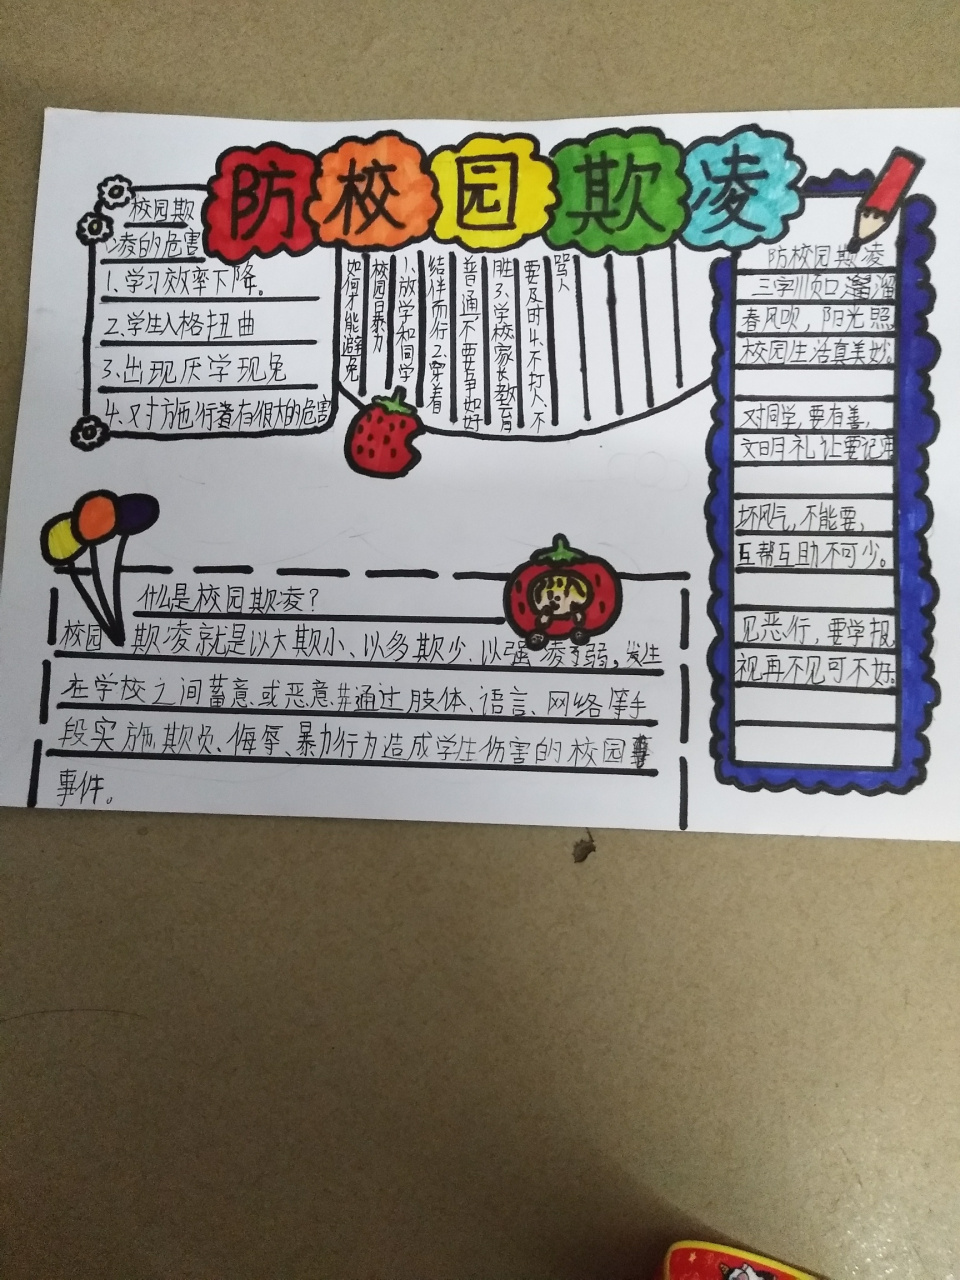 防校园欺凌
校园欺
凌的危害
1、学习效率下降。
2、学生人格扭曲
3、出现厌学现兔
4、对方施行者有很大的危害
如何才能避免
校园暴力
1、放学和同学
结伴而行2、穿着
普通不要争如好
胜3、学校家长教育
要及时4、不打人不
骂人
防校园欺凌
三字顺口溜
春风吹，阳光照
校园生活真美妙。
对同学，要有善，
文明礼让要记牢
坏风气，不能要，
互帮互助不可少。
见恶行，要学报
视再不见可不好。
什么是校园欺凌？
校园欺凌就是以大欺小、以多欺少、以强凌弱，发生
在学校之间蓄意或恶意通过肢体、语言、网络等手
段实施欺负、侮辱、暴力行为造成学生伤害的校园
事件。